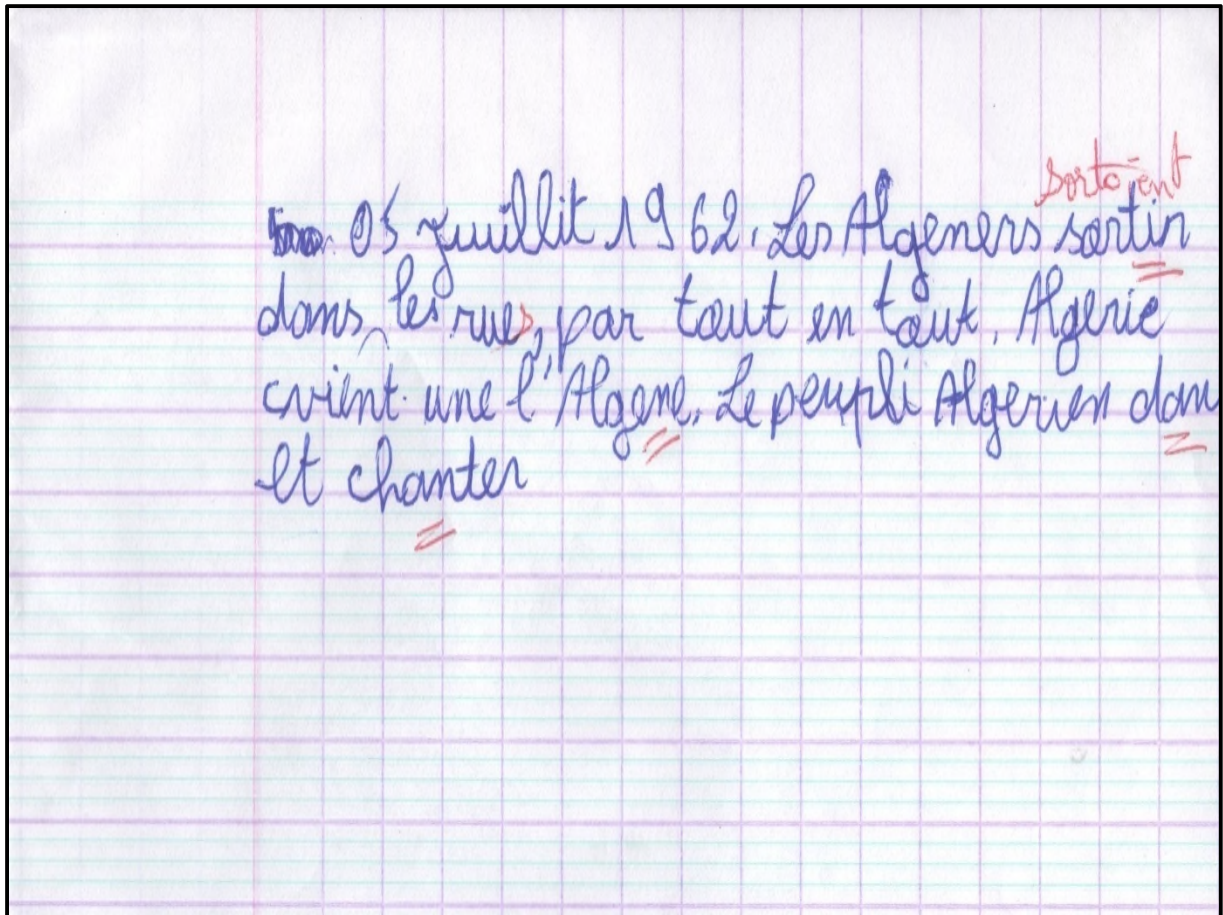 sortaient
05 juillit 1962. Les Algeners sortin
dans les rues, par tout en tout. Algerie
crient une l'Algene. Le peupli Algerien dan
et chanter